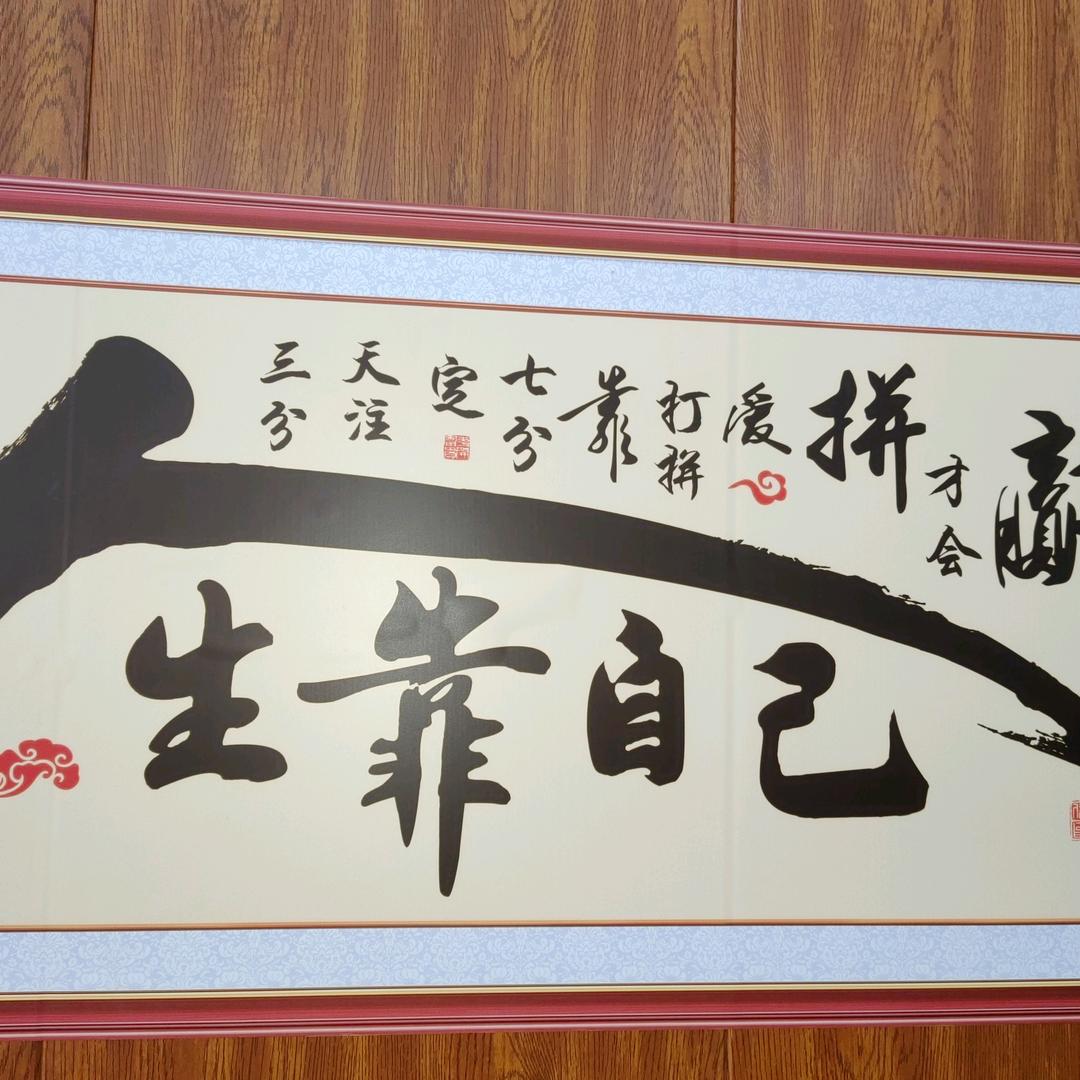 三分天注定七分靠打拼爱拼才会赢
一生靠自己